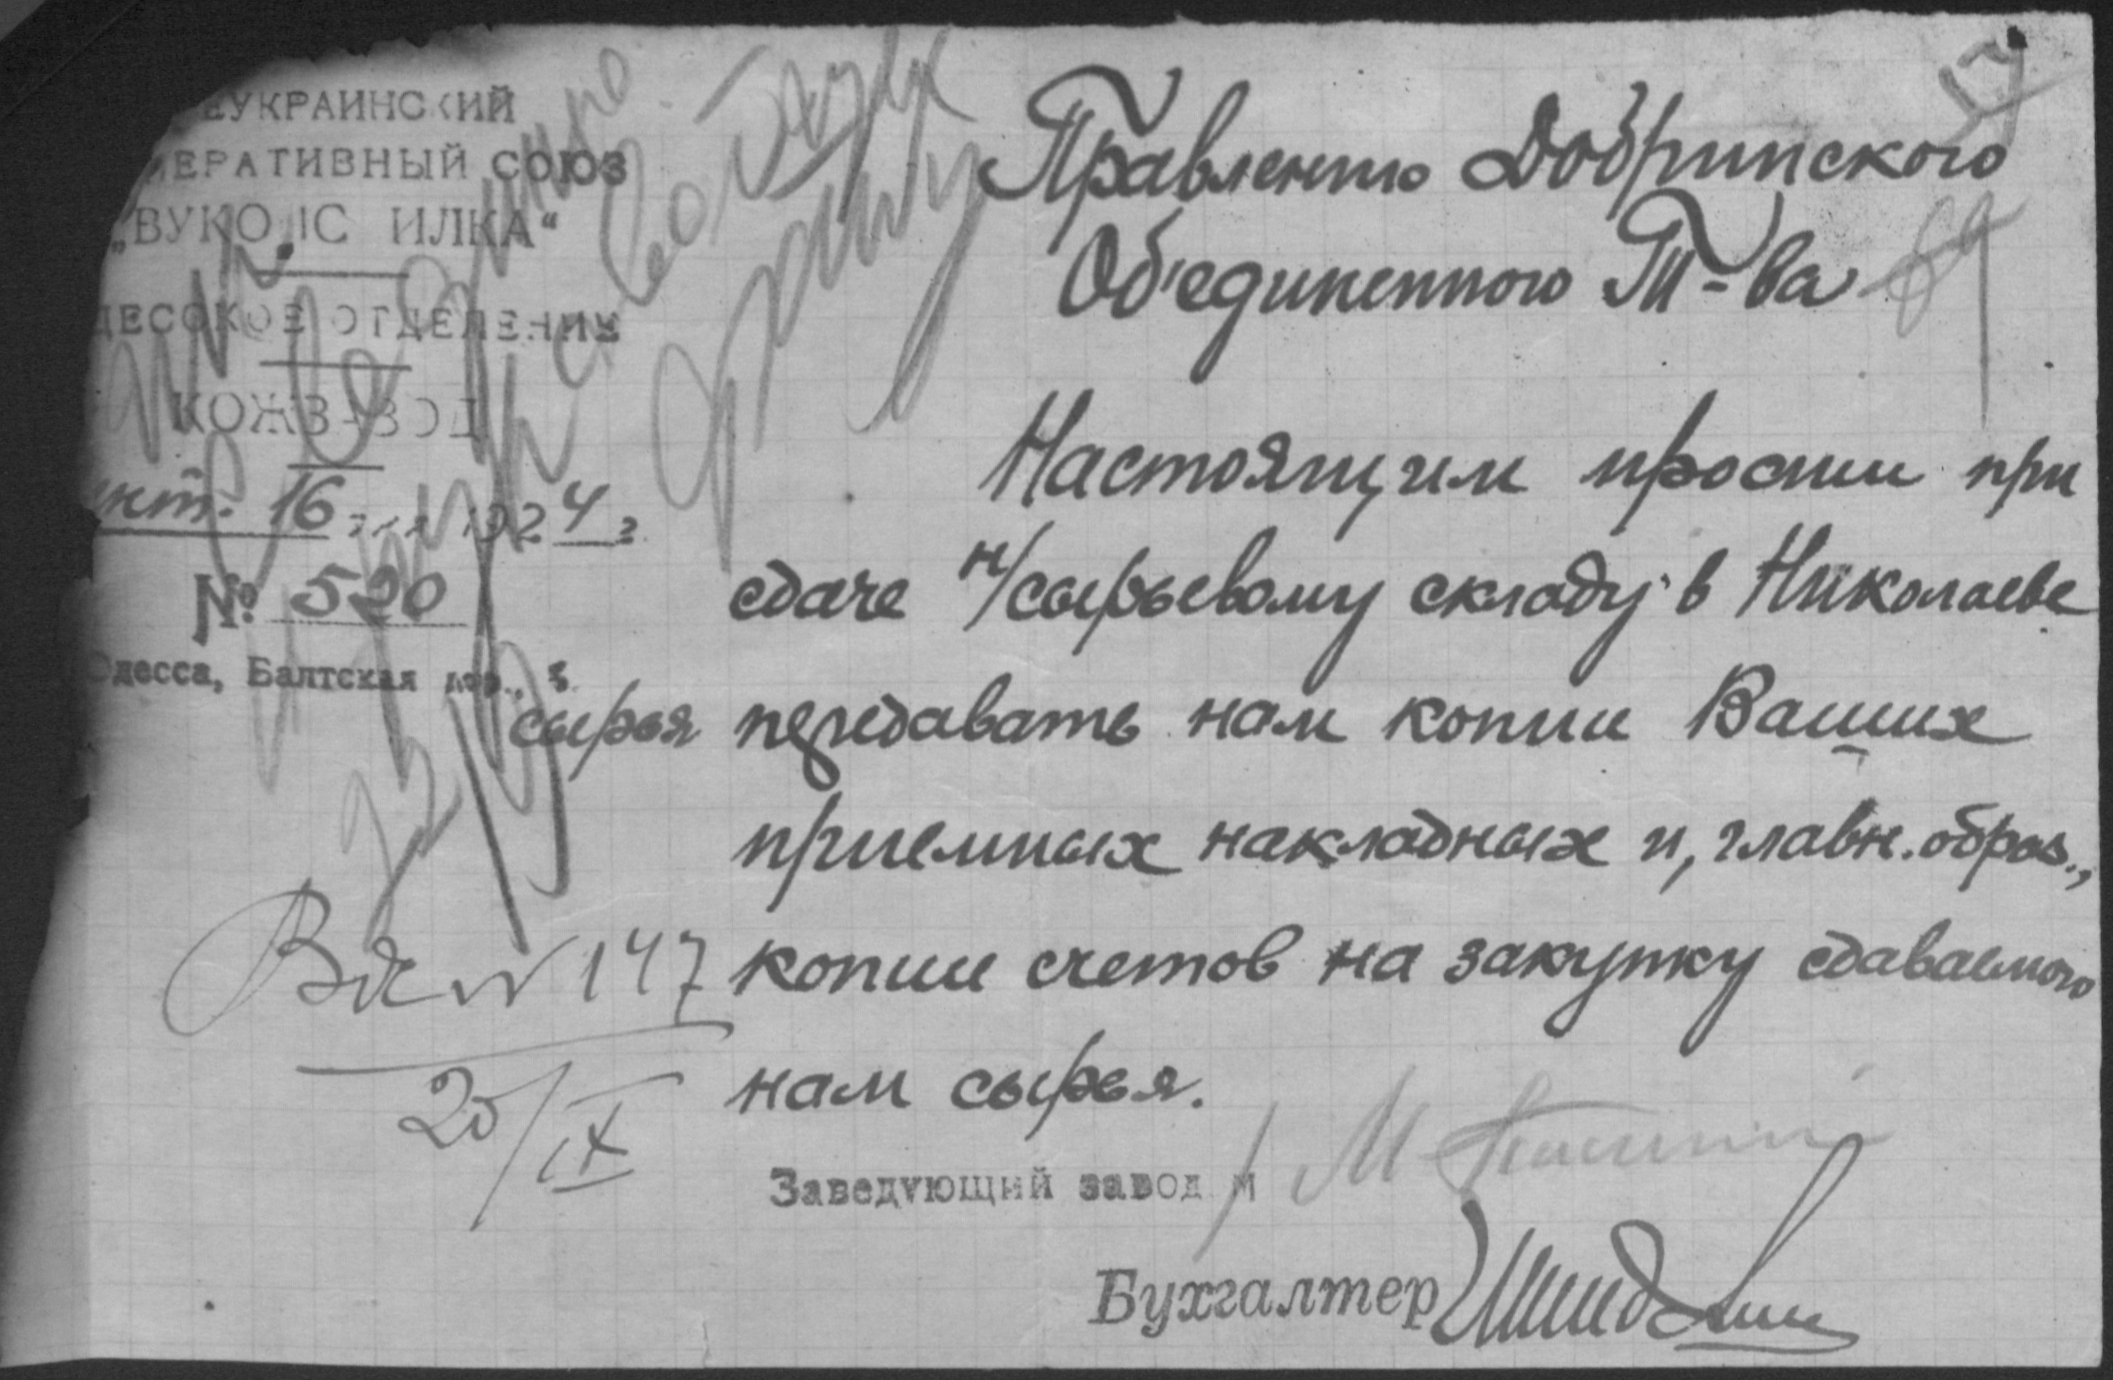 ЕУКРАИНСКИЙ
ЕРАТИВНЫЙ СОЮЗ
„ВУКО ІС ИЛКА“
ДЕССКОЕ ОТДЕЛЕНИЕ
КОЖЗАВОД
нт. 16 192 4 г.
№ 520
Одесса, Балтская дор., 3.
Правлению Добринского
Об'единенного Т-ва
69
Настоящим просим при
сдаче н/сырьевому складу в Николаеве
сырья передавать нам копии Ваших
приемных накладных и, главн. образ.,
копии счетов на закупку сдаваемого
нам сырья.
Вх N 147
25/IX
Заведующий завод м
Бухгалтер